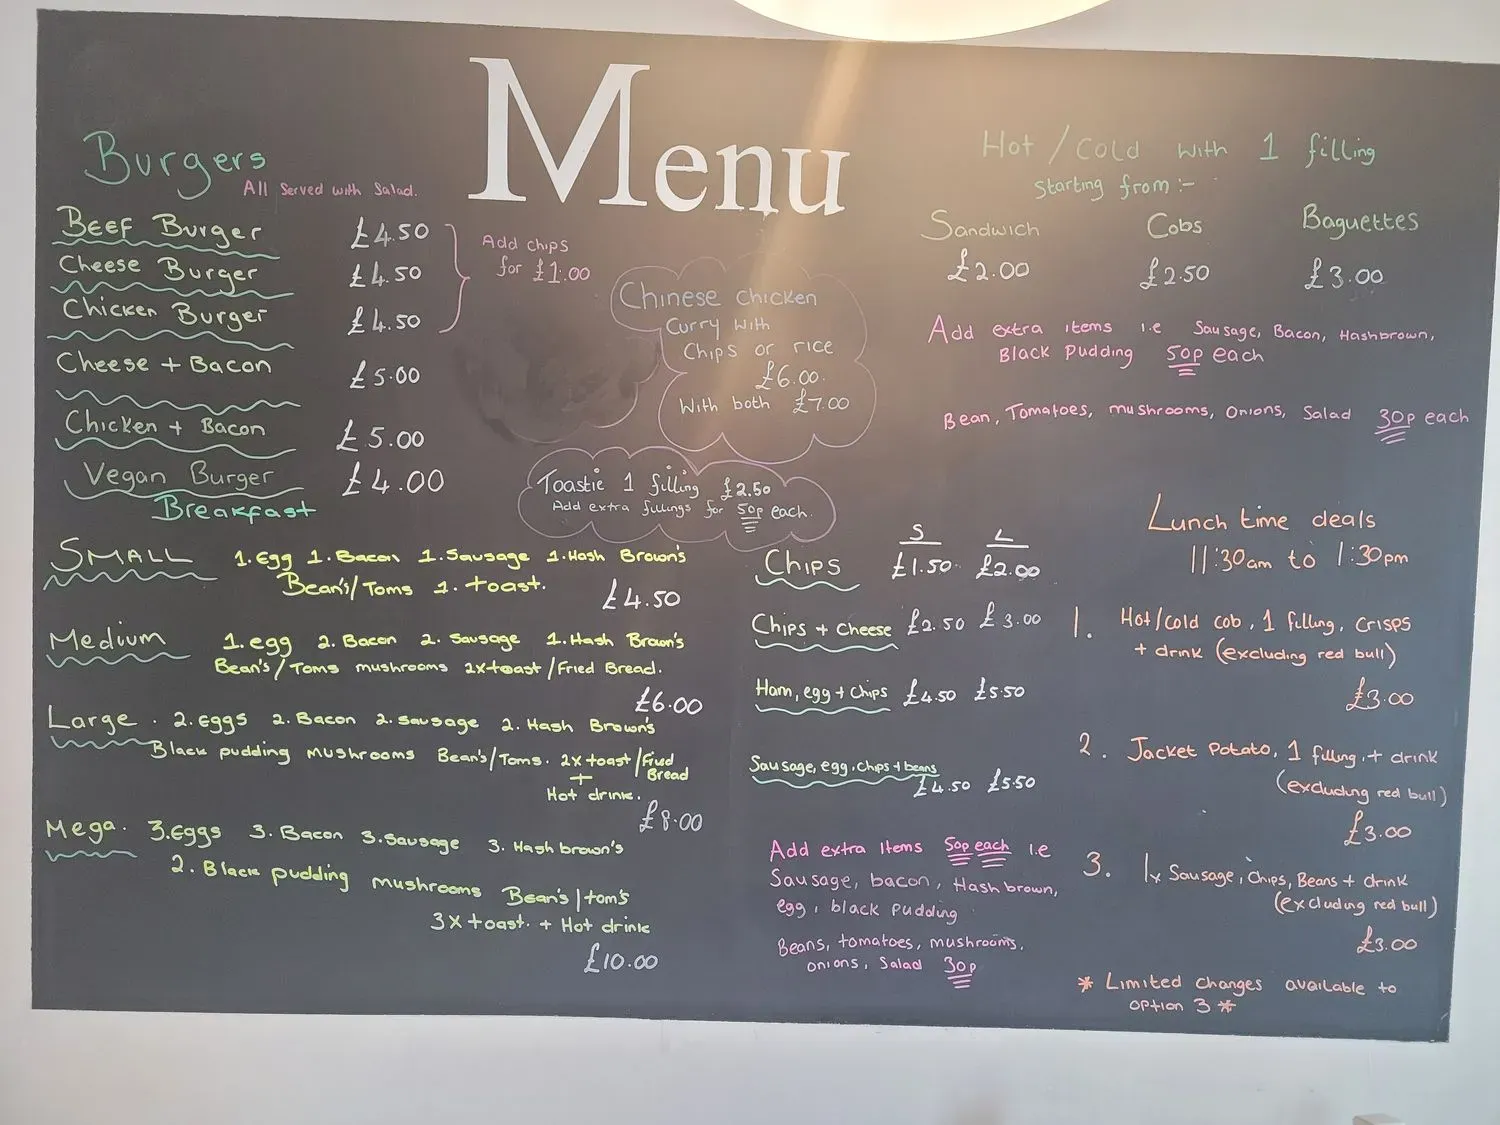 Menu
Burgers
All Served with Salad.
Beef Burger £4.50
Cheese Burger £4.50
Chicken Burger £4.50
Add chips
for £1.00
Cheese + Bacon £5.00
Chicken + Bacon £5.00
Vegan Burger £4.00
Chinese Chicken
Curry With
Chips or rice
£6.00.
With both £7.00
Toastie 1 filling £2.50
Add extra fillings for 50p each.
Breakfast
Small 1.Egg 1.Bacon 1.Sausage 1.Hash Brown's
Bean's/Toms 1.toast.
£4.50
Medium 1.egg 2.Bacon 2.Sausage 1.Hash Brown's
Bean's/Toms mushrooms 2xtoast/Fried Bread.
£6.00
Large. 2.eggs 2.Bacon 2.sausage 2.Hash Brown's
Black pudding mushrooms Bean's/Toms. 2xtoast/Fried
Bread
+
Hot drink.
£8.00
Mega. 3.Eggs 3.Bacon 3.Sausage 3.Hashbrown's
2.Black pudding mushrooms Bean's/tom's
3xtoast. + Hot drink
£10.00
Hot/cold with 1 filling
Starting from:-
Sandwich Cobs Baguettes
£2.00 £2.50 £3.00
Add extra items i.e Sausage, Bacon, Hashbrown,
Black Pudding 50p each
Bean, Tomatoes, mushrooms, Onions, Salad 30p each
S L
Chips £1.50. £2.00
Chips + Cheese £2.50 £3.00
Ham, egg + chips £4.50 £5.50
Sausage, egg, chips + beans
£4.50 £5.50
Add extra items 50p each i.e
Sausage, bacon, Hash brown,
egg, black pudding
Beans, tomatoes, mushrooms,
onions, Salad 30p
Lunch time deals
11:30am to 1:30pm
1. Hot/cold cob, 1 filling, crisps
+ drink (excluding red bull)
£3.00
2. Jacket Potato, 1 filling + drink
(excluding red bull)
£3.00
3. 1x Sausage, Chips, Beans + drink
(excluding red bull)
£3.00
* Limited changes available to
option 3 *